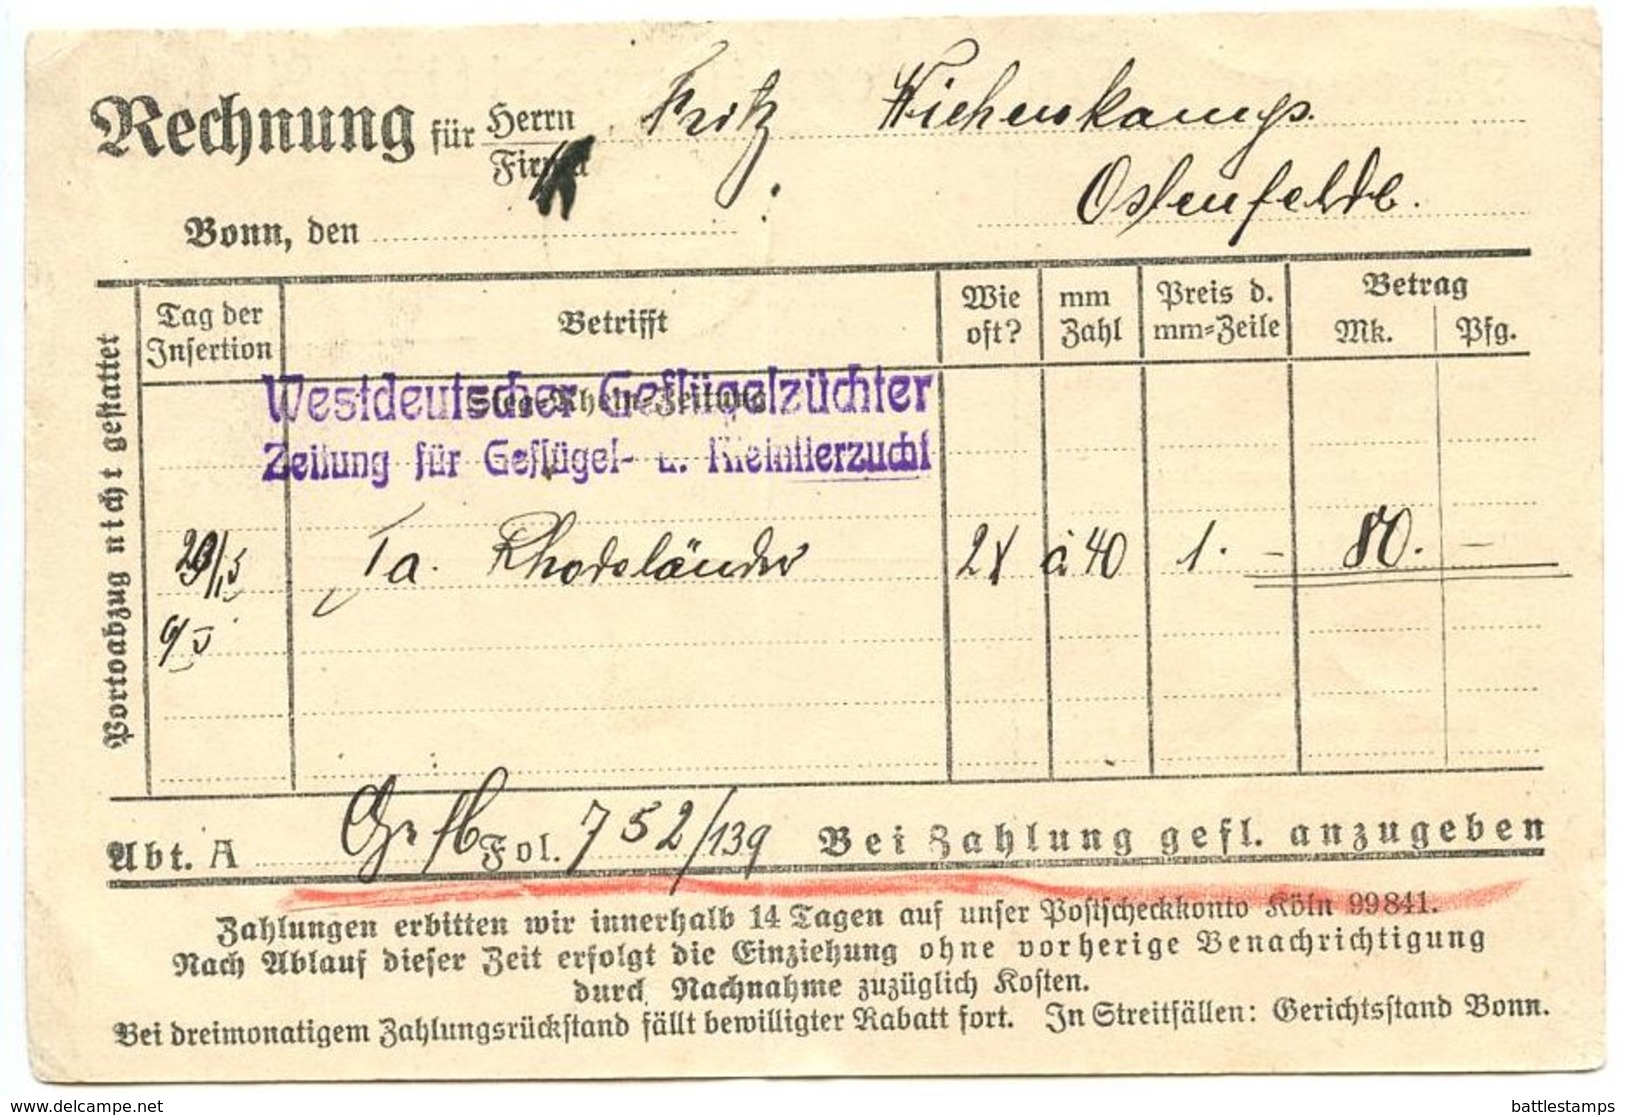 Rechnung für Herrn Fritz Wiehenkamp.
Firma
Ostenfelde.
Bonn, den
Portoabzug nicht gestattet
Tag der Insertion
Betrifft
Wie oft?
mm Zahl
Preis d. mm=Zeile
Betrag
Mk. Pfg.
Sieg=Rhein=Zeitung
Westdeutscher Geflügelzüchter
Zeitung für Geflügel- u. Kleintierzucht
29/5 Ia. Rhodeländer 2x à 40 1. – 80. –
Abt. A Fol. 752/139 Bei Zahlung gefl. anzugeben
Zahlungen erbitten wir innerhalb 14 Tagen auf unser Postscheckkonto Köln 99841.
Nach Ablauf dieser Zeit erfolgt die Einziehung ohne vorherige Benachrichtigung
durch Nachnahme zuzüglich Kosten.
Bei dreimonatigem Zahlungsrückstand fällt bewilligter Rabatt fort. In Streitfällen: Gerichtsstand Bonn.
www.delcampe.net
battlestamps